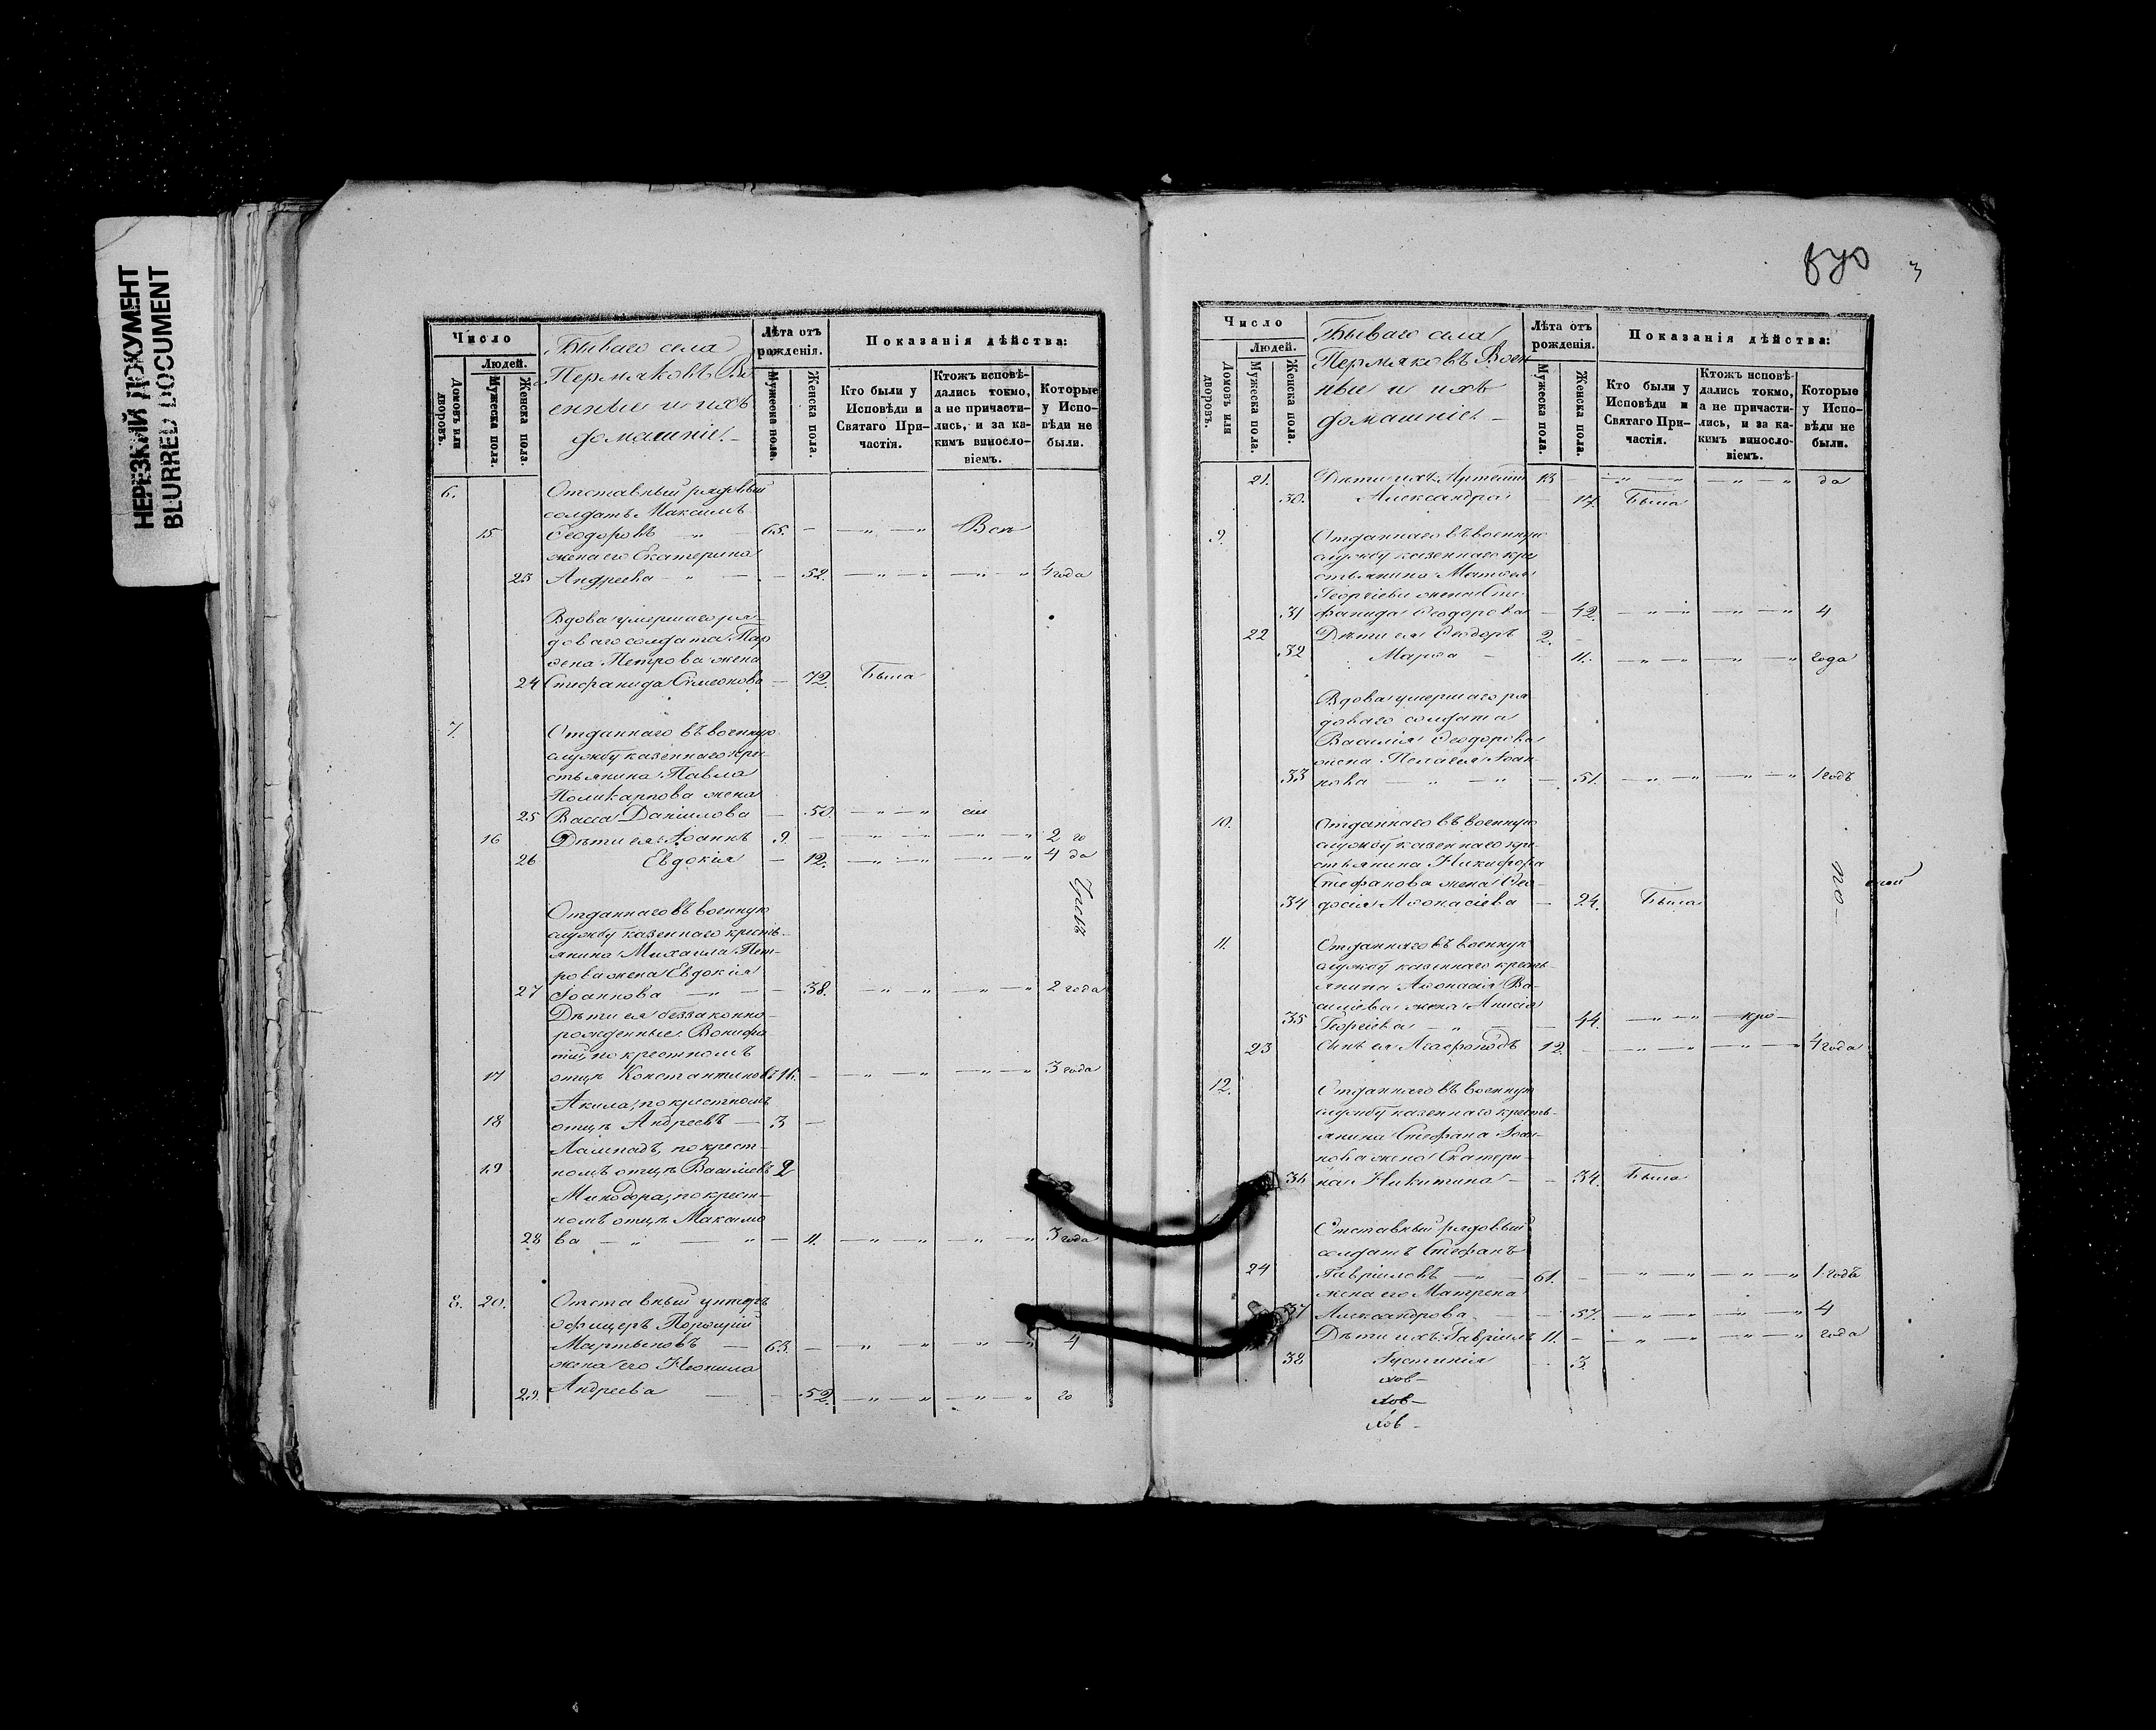 НЕРЕЗКИЙ ДОКУМЕНТ
BLURRED DOCUMENT
Число
Людей.
Домовъ или дворовъ.
Мужеска пола.
Женска пола.
Бываго села
Пермяковъ Во
енные и ихъ
домашніе.
Лѣта отъ рожденія.
Мужеска пола.
Женска пола.
Показанія дѣйства:
Кто были у Исповѣди и Святаго Причастія.
Ктожъ исповѣдались токмо, а не причастились, и за какимъ винословіемъ.
Которые у Исповѣди не были.
6. Отставный рядовый
солдатъ Максимъ
15 Ѳеодоровъ 65. Всѣ
жена его Екатерина
23 Андреева 52. 4 года
Вдова умершаго ря-
доваго солдата Пар
ѳена Петрова жена
24 Стефанида Симеонова 72. Была
7. Отданнаго въ военную
службу казеннаго кре-
стьянина Павла
Поликарпова жена
25 Васса Даніилова 50. сіи
16 Дѣти ея: Іоаннъ 9. 2 го
26 Евдокія 12. 4 да
Отданнаго въ военную
службу казеннаго кресть-
янина Михаила Пет-
рова жена Евдокія
27 Іоаннова 38. 2 года
Дѣти ея беззаконно-
рожденные: Вонифа
тій, по крестномъ
17 отцѣ Константиновъ 16. 3 года
Акила, по крестномъ
18 отцѣ Андреевъ 3
Лампадъ, по крест-
19 номъ отцѣ Василіевъ 2
Минодора, по крест-
номъ отцѣ Максимо
28 ва 11. 3 года
8. 20. Отставный унтеръ
офицеръ Порфирій
Мартыновъ 63. 4
жена его Неонила
29. Андреева 52. го
3
Число
Людей.
Домовъ или дворовъ.
Мужеска пола.
Женска пола.
Бываго села
Пермяковъ Воен
ные и ихъ
домашніе.
Лѣта отъ рожденія.
Мужеска пола.
Женска пола.
Показанія дѣйства:
Кто были у Исповѣди и Святаго Причастія.
Ктожъ исповѣдались токмо, а не причастились, и за какимъ винословіемъ.
Которые у Исповѣди не были.
21. Дѣти ихъ: Артемій 13 да
30. Александра 17. Была
9. Отданнаго въ военную
службу казеннаго кре
стьянина Матѳея
Георгіева жена Сте-
31 фанида Ѳеодорова 42. 4
22 Дѣти ея: Ѳеодоръ 2.
32 Марѳа 11. года
Вдова умершаго ря
доваго солдата
Василія Ѳеодорова
жена Пелагея Іоан-
33 нова 51. 1 годъ
10. Отданнаго въ военную
службу казеннаго кре-
стьянина Никифора
Стефанова жена Ѳео-
34 досія Аѳонасіева 24. Была
11. Отданнаго въ военную
службу казеннаго кресть-
янина Аѳонасія Ва-
силіева жена Анисія
35 Георгіева 44. кро-
23 Сынъ ея 12. 4 года
12. Отданнаго въ военную
службу казеннаго кресть-
янина Стефана Іоан-
нова жена Екатери-
36 на Никитина 34. Была
Отставный рядовый
солдатъ Стефанъ
24 Гавріиловъ 61. 1 годъ
жена его Матрена
37 Александрова 57. 4
Дѣти ихъ: Гавріилъ 11. года
38 Іустинія 3.